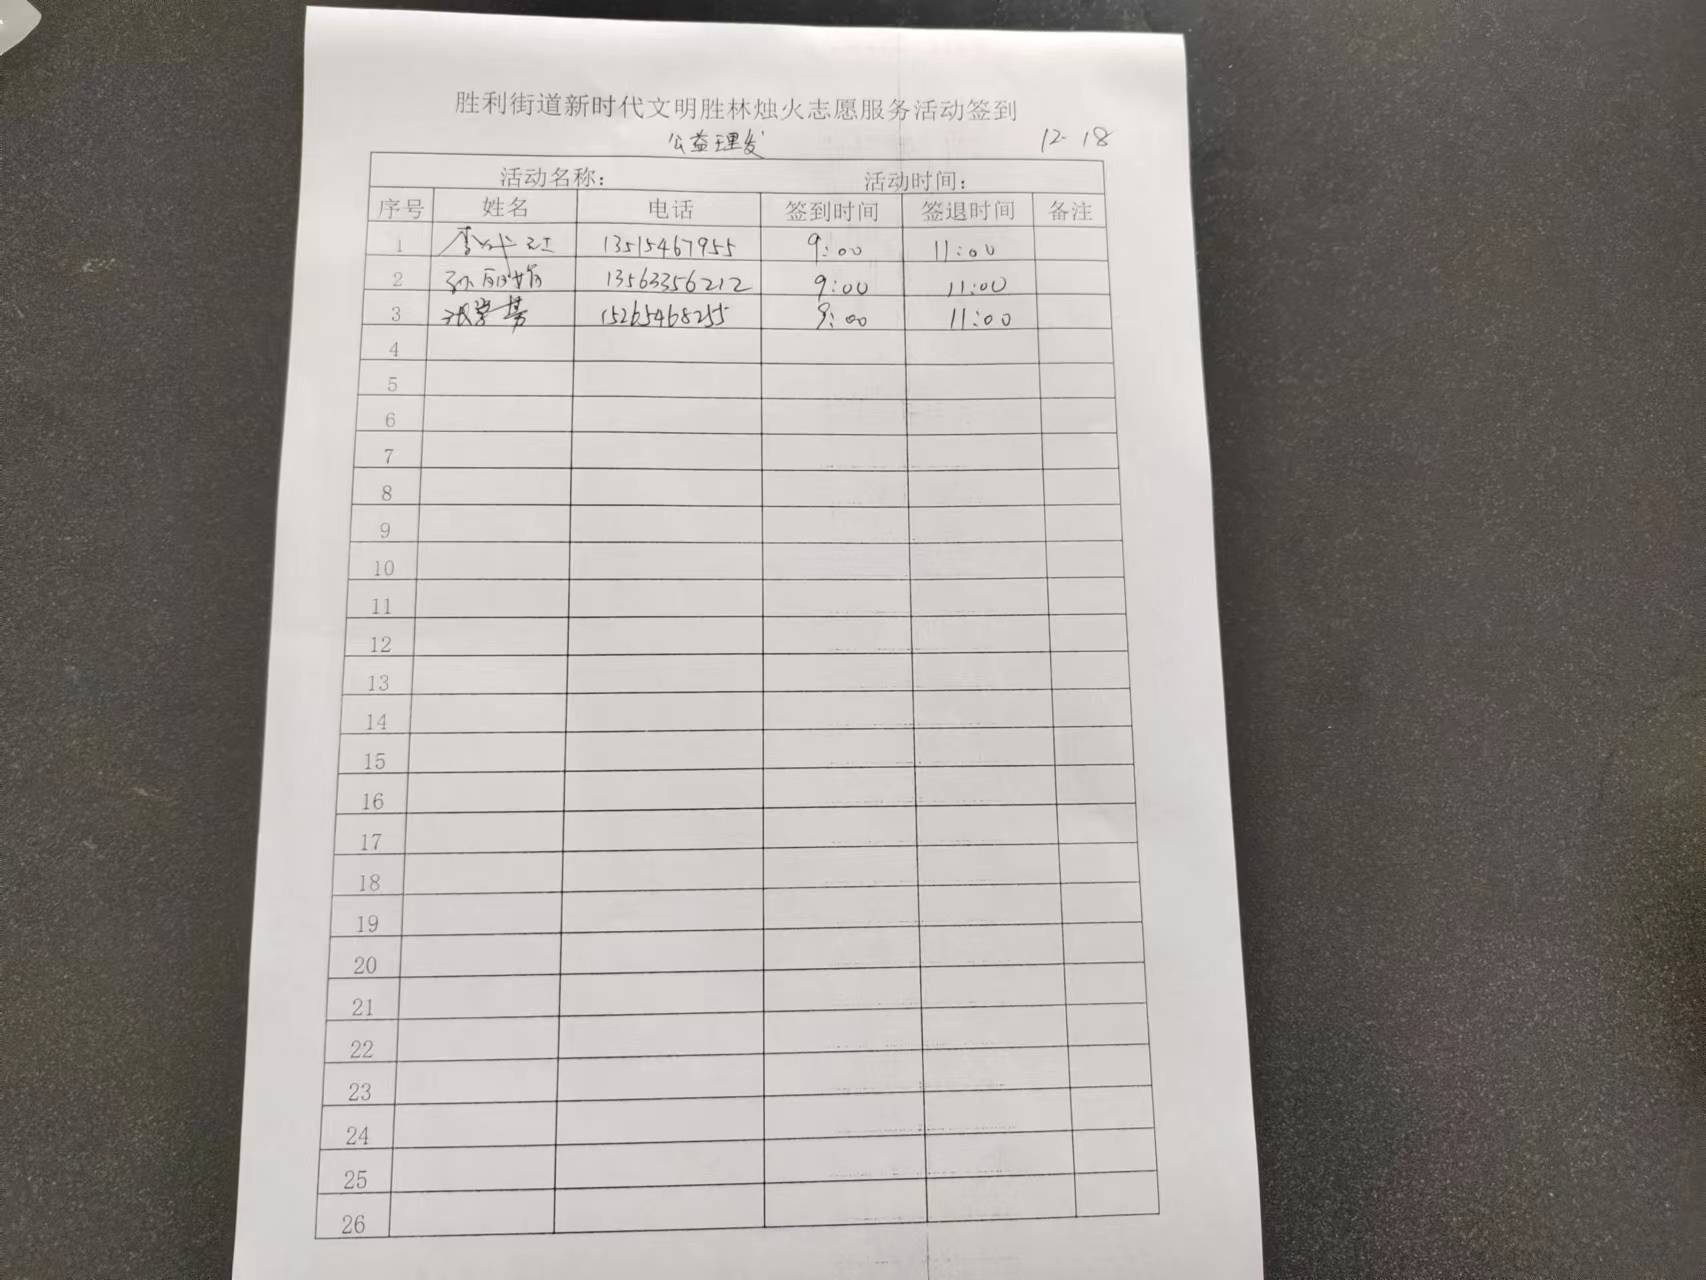 胜利街道新时代文明胜林烛火志愿服务活动签到
公益理发 12-18
活动名称: 活动时间:
序号 姓名 电话 签到时间 签退时间 备注
1 李代江 13515467955 9:00 11:00
2 孙丽娟 13563356212 9:00 11:00
3 张学 15265468255 9:00 11:00
4
5
6
7
8
9
10
11
12
13
14
15
16
17
18
19
20
21
22
23
24
25
26